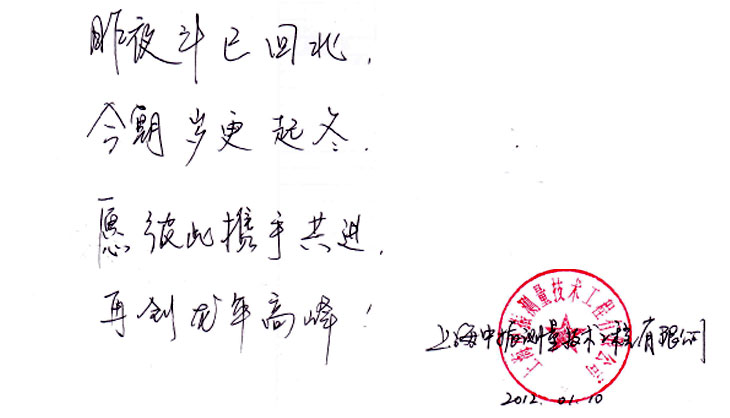 昨夜斗已回北,
今朝岁更起冬.
愿彼此携手共进,
再创龙年高峰!
上海中振测量技术工程有限公司
上海中振测量技术工程有限公司
2012.01.10